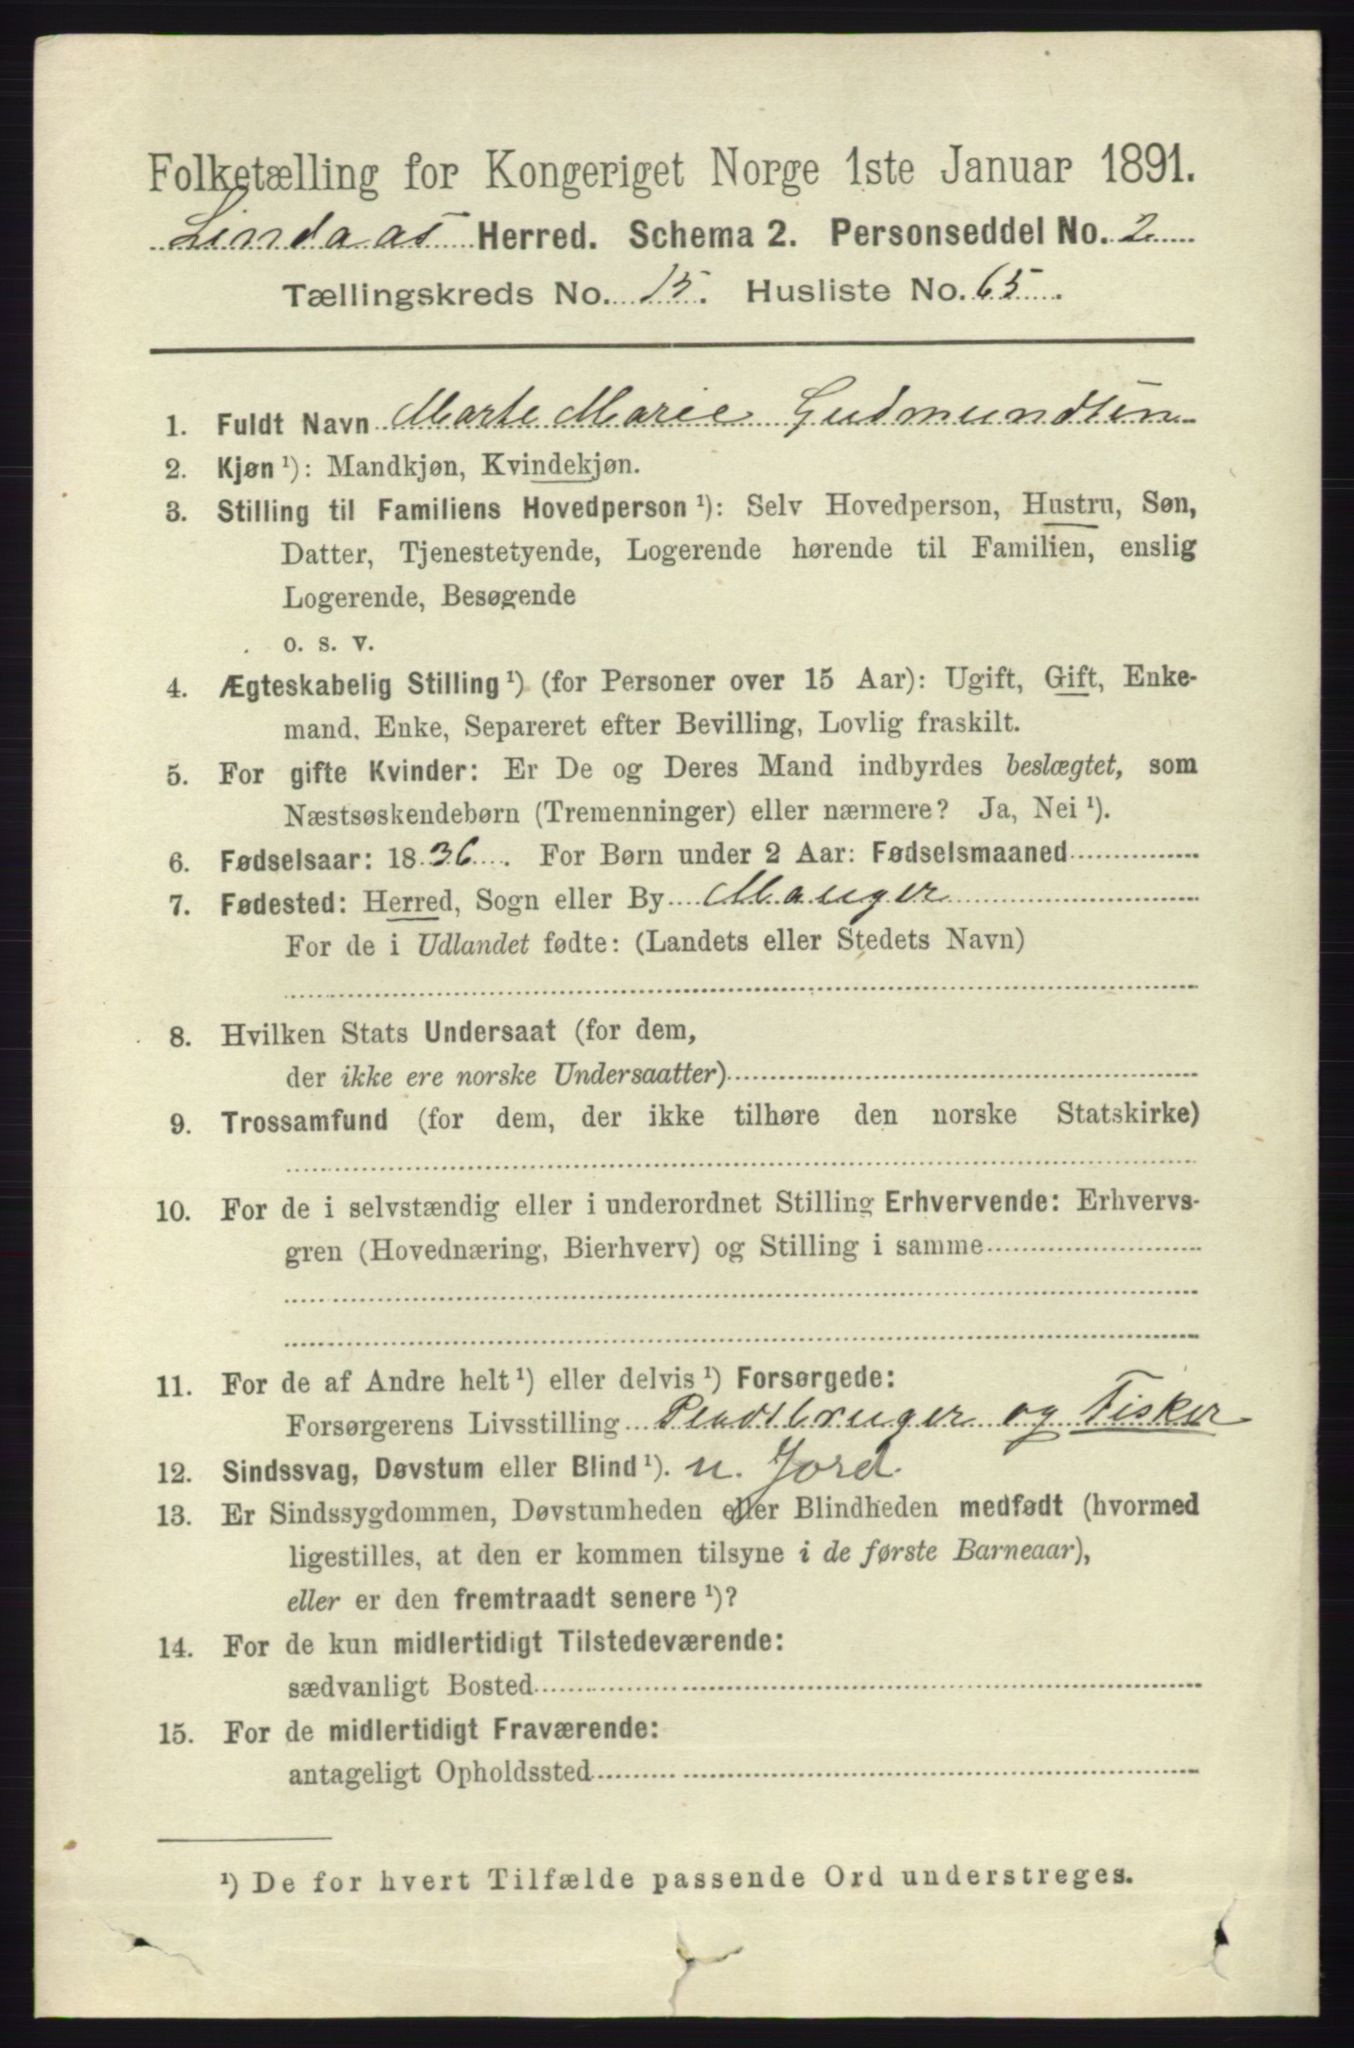 Folketælling for Kongeriget Norge 1ste Januar 1891.
Lindaas Herred. Schema 2. Personseddel No. 2
Tællingskreds No. 15. Husliste No. 65.
1. Fuldt Navn Marte Marie Gudmundsen
2. Kjøn ¹): Mandkjøn, Kvindekjøn.
3. Stilling til Familiens Hovedperson ¹): Selv Hovedperson, Hustru, Søn,
Datter, Tjenestetyende, Logerende hørende til Familien, enslig
Logerende, Besøgende
o. s. v.
4. Ægteskabelig Stilling ¹) (for Personer over 15 Aar): Ugift, Gift, Enke-
mand, Enke, Separeret efter Bevilling, Lovlig fraskilt.
5. For gifte Kvinder: Er De og Deres Mand indbyrdes beslægtet, som
Næstsøskendebørn (Tremenninger) eller nærmere? Ja, Nei ¹).
6. Fødselsaar: 1836. For Børn under 2 Aar: Fødselsmaaned
7. Fødested: Herred, Sogn eller By Manger
For de i Udlandet fødte: (Landets eller Stedets Navn)
8. Hvilken Stats Undersaat (for dem,
der ikke ere norske Undersaatter)
9. Trossamfund (for dem, der ikke tilhøre den norske Statskirke)
10. For de i selvstændig eller i underordnet Stilling Erhvervende: Erhvervs-
gren (Hovednæring, Bierhverv) og Stilling i samme
11. For de af Andre helt ¹) eller delvis ¹) Forsørgede:
Forsørgerens Livsstilling Pladsbruger og Fisker
12. Sindssvag, Døvstum eller Blind ¹). u. Jord.
13. Er Sindssygdommen, Døvstumheden eller Blindheden medfødt (hvormed
ligestilles, at den er kommen tilsyne i de første Barneaar),
eller er den fremtraadt senere ¹)?
14. For de kun midlertidigt Tilstedeværende:
sædvanligt Bosted
15. For de midlertidigt Fraværende:
antageligt Opholdssted
¹) De for hvert Tilfælde passende Ord understreges.